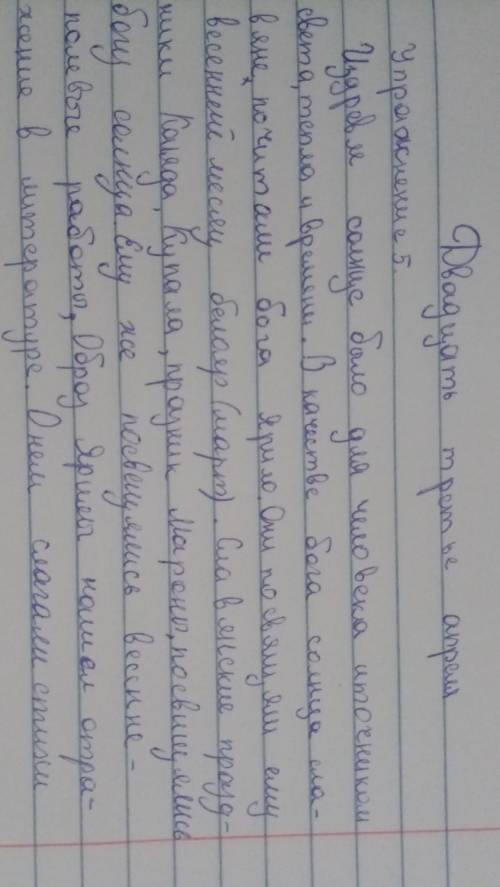 Двадцать третье апреля
Упражнение 5.
Издревле солнце было для человека источником
света, тепла и времени. В качестве бога солнца сла-
вяне почитали бога Ярило. Они посвящали ему
весенний месяц белояр (март). Славянские празд-
ники Коляда, Купала, праздник Мароны, посвящались
богу солнца. Ему же посвящались весенне-
полевые работы. Образ Ярилы нашёл отра-
жение в литературе. О нем слагали стихи